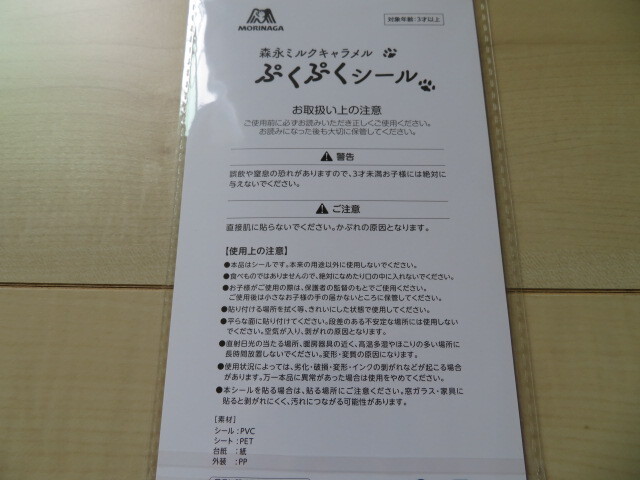 MORINAGA
対象年齢:3才以上
森永ミルクキャラメル
ぷくぷくシール
お取扱い上の注意
ご使用前に必ずお読みいただき正しくご使用ください。
お読みになった後も大切に保管してください。
警告
誤飲や窒息の恐れがありますので、3才未満お子様には絶対に
与えないでください。
ご注意
直接肌に貼らないでください。かぶれの原因となります。
【使用上の注意】
●本品はシールです。本来の用途以外に使用しないでください。
●食べものではありませんので、絶対になめたり口の中に入れないでください。
●お子様がご使用の際は、保護者の監督のもとでご使用ください。
ご使用後は小さなお子様の手の届かないところに保管してください。
●貼り付ける場所を拭く等、きれいにした状態で使用してください。
●平らな面に貼り付けてください。段差のある不安定な場所には使用しない
でください。空気が入り、剥がれの原因となります。
●直射日光の当たる場所、暖房器具の近く、高温多湿やほこりの多い場所に
長時間放置しないでください。変形・変質の原因になります。
●使用状況によっては、劣化・破損・変形・インクの剥がれなどが起こる場合
があります。万一本品に異常があった場合は使用をやめてください。
●本シールを貼る場合は、貼る場所にご注意ください。窓ガラス・家具に
貼ると剥がれにくく、汚れにつながる可能性があります。
[素材]
シール:PVC
シート:PET
台紙:紙
外装:PP